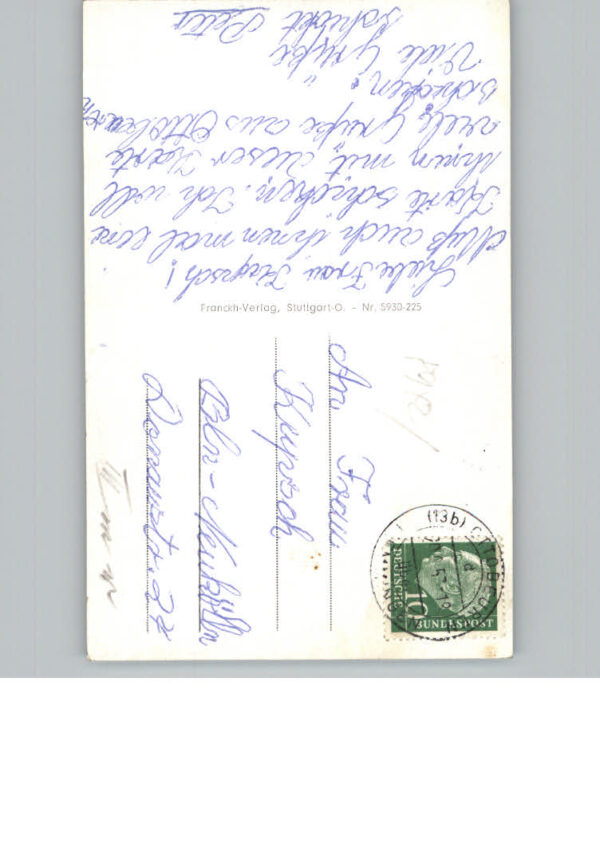 Liebe Frau Kupsch!
Muß auch ihnen mal eine
Karte schicken. Ich will
Ihnen mit dieser Karte
viele Grüße aus Ottobeuren
schicken.
Viele Grüße
schickt Peter
Franckh-Verlag, Stuttgart-O. - Nr. 5930-225
An Frau
Kupsch
Bln-Neukölln
Donaustr. 27
(13b) OTTOBEUREN
DEUTSCHE
10
BUNDESPOST